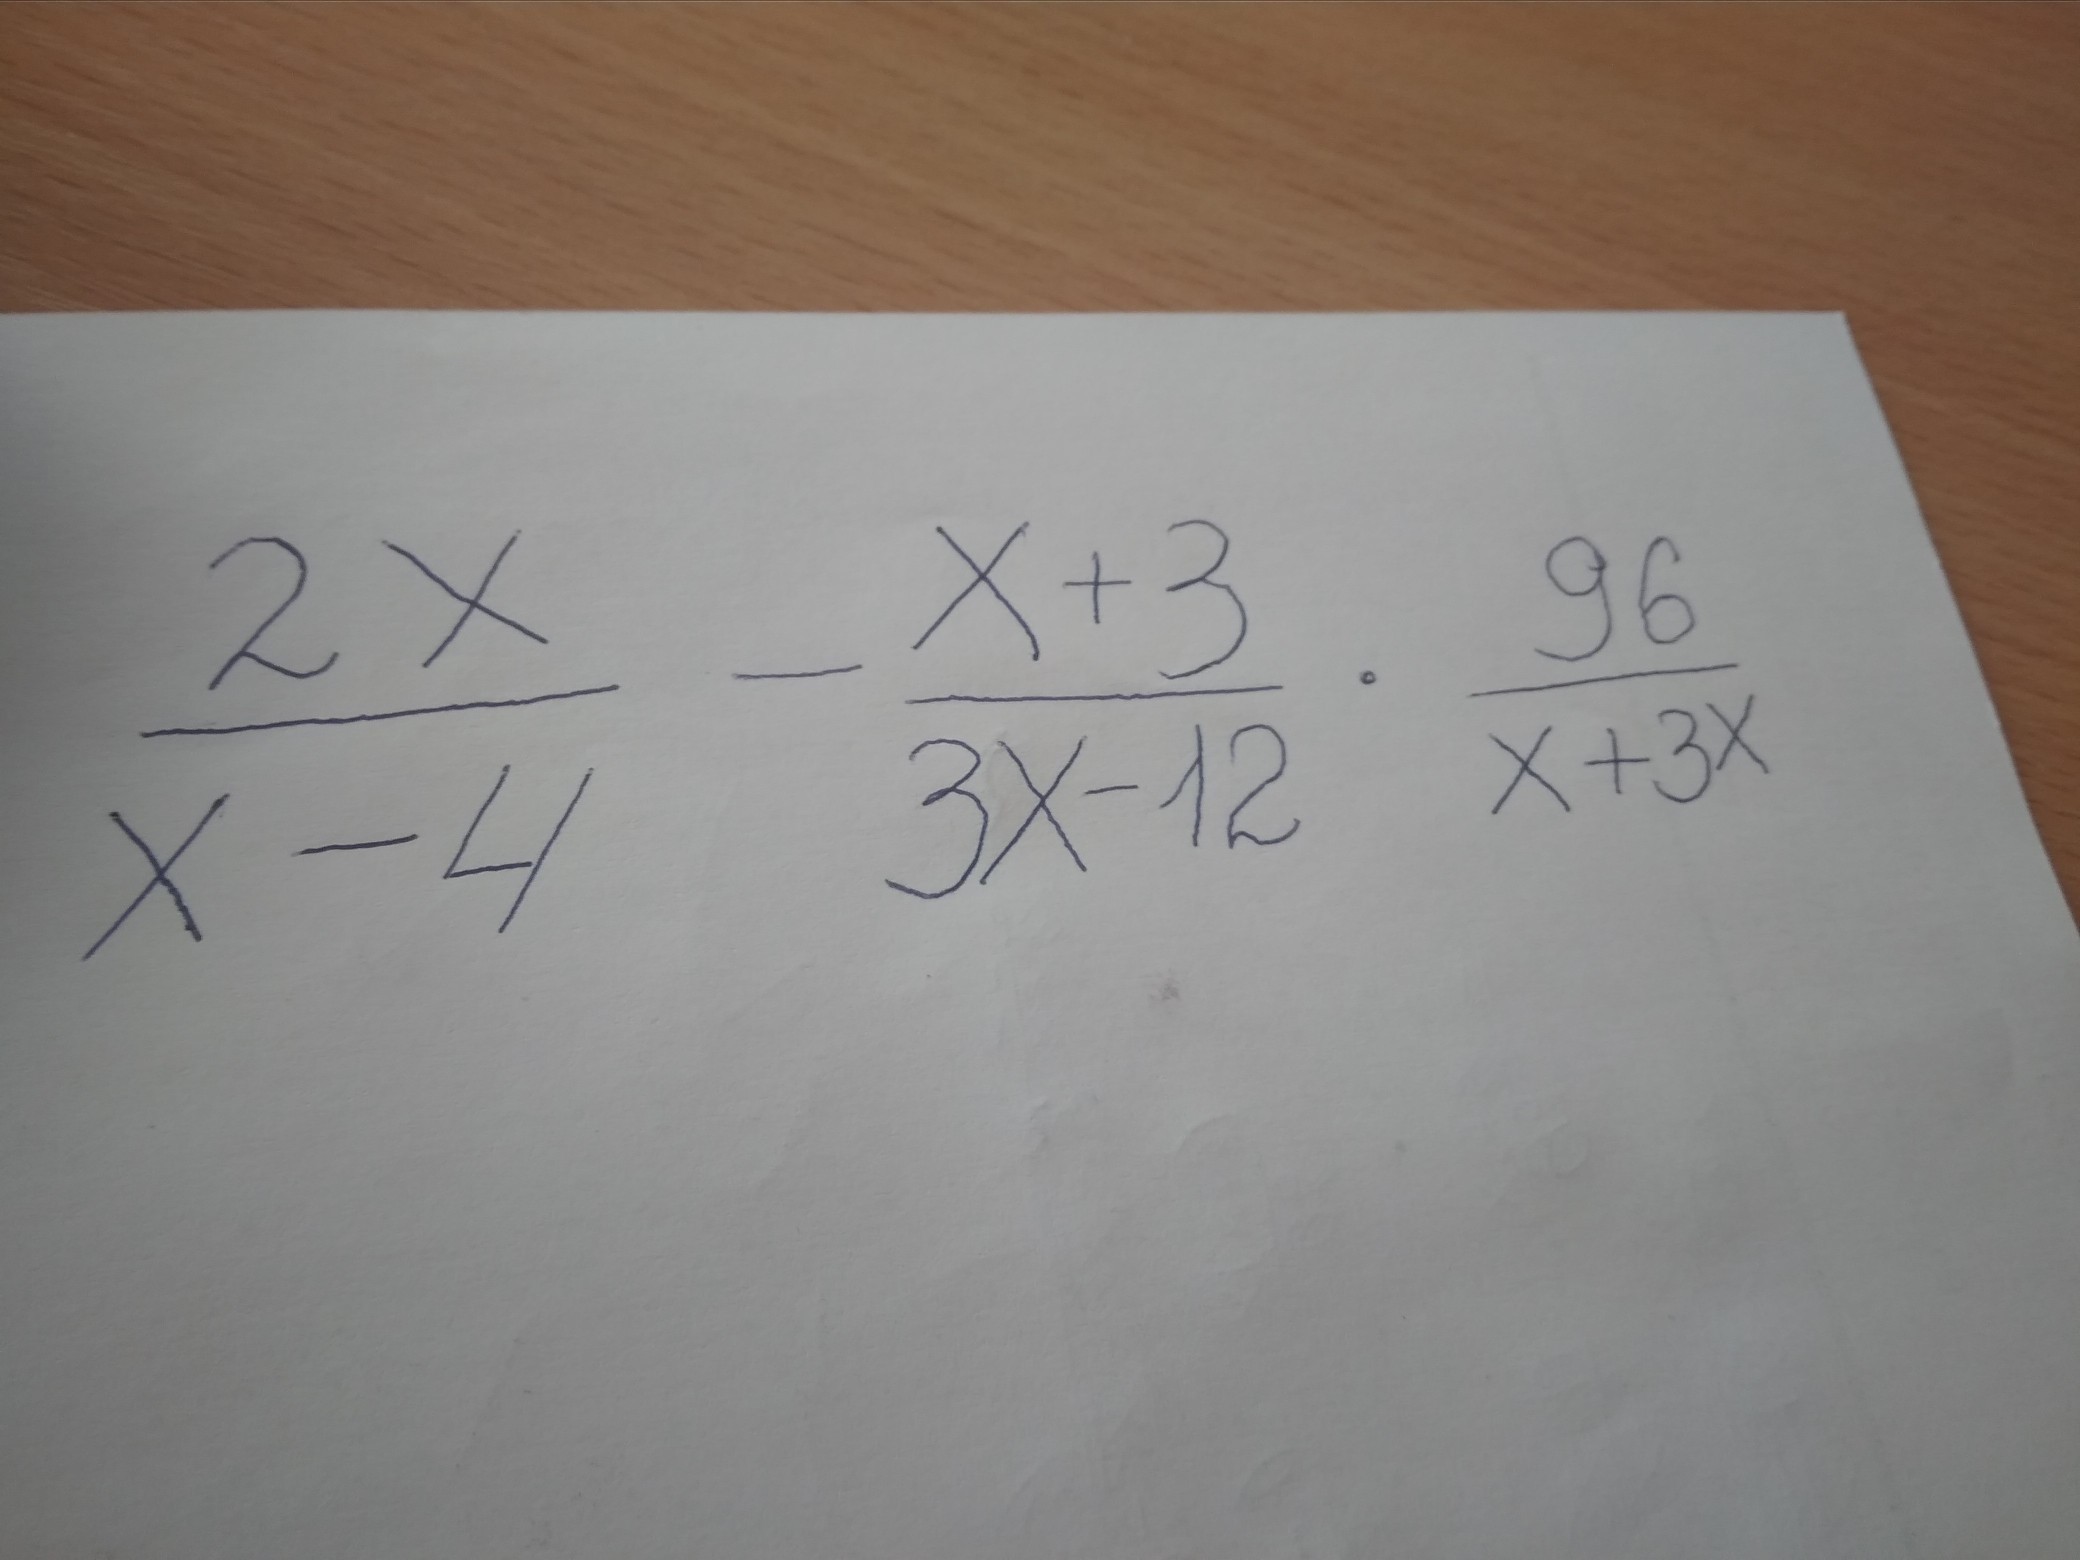 2x/x-4 - x+3/3x-12 · 96/x+3x